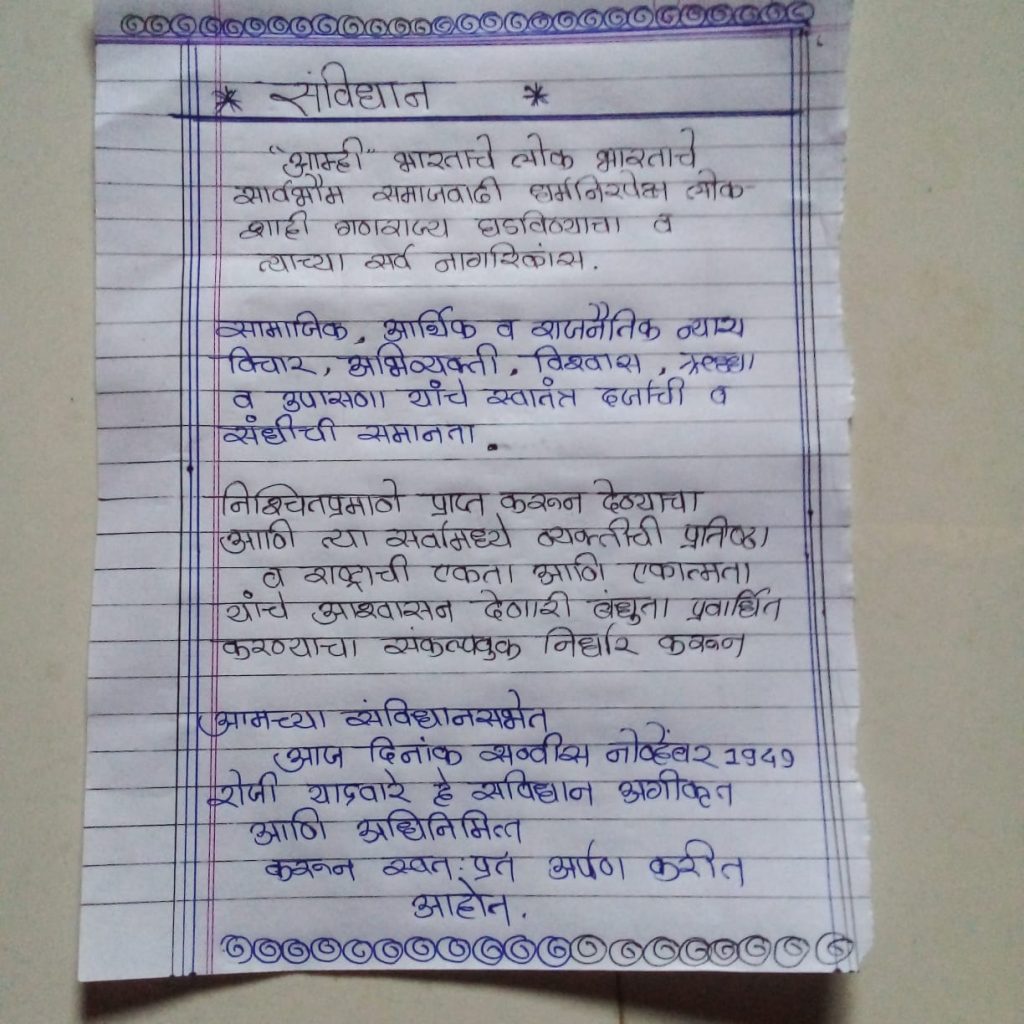 * संविधान *
"आम्ही" भारताचे लोक भारताचे
सार्वभौम समाजवादी धर्मनिरपेक्ष लोक-
शाही गणराज्य घडविण्याचा व
त्याच्या सर्व नागरिकांस.
सामाजिक, आर्थिक व राजनैतिक न्याय
विचार, अभिव्यक्ती, विश्वास,
व उपासणा यांचे स्वातंत्र दर्जाची व
संधीची समानता.
निश्चितप्रमाणे प्राप्त करून देण्याचा
आणि त्या सर्वामध्ये व्यक्तीची प्रतिष्ठा
व राष्ट्राची एकता आणि एकात्मता
यांचे आश्वासन देणारी बंधुता प्रवार्धित
करण्याचा निर्धार करून
आमच्या संविधानसभेत
आज दिनांक सव्वीस नोव्हेंबर 1949
रोजी याद्वारे हे सविधान अगीकृत
आणि अधिनिमित्त
करून स्वत:प्रत अर्पण करीत
आहोत.